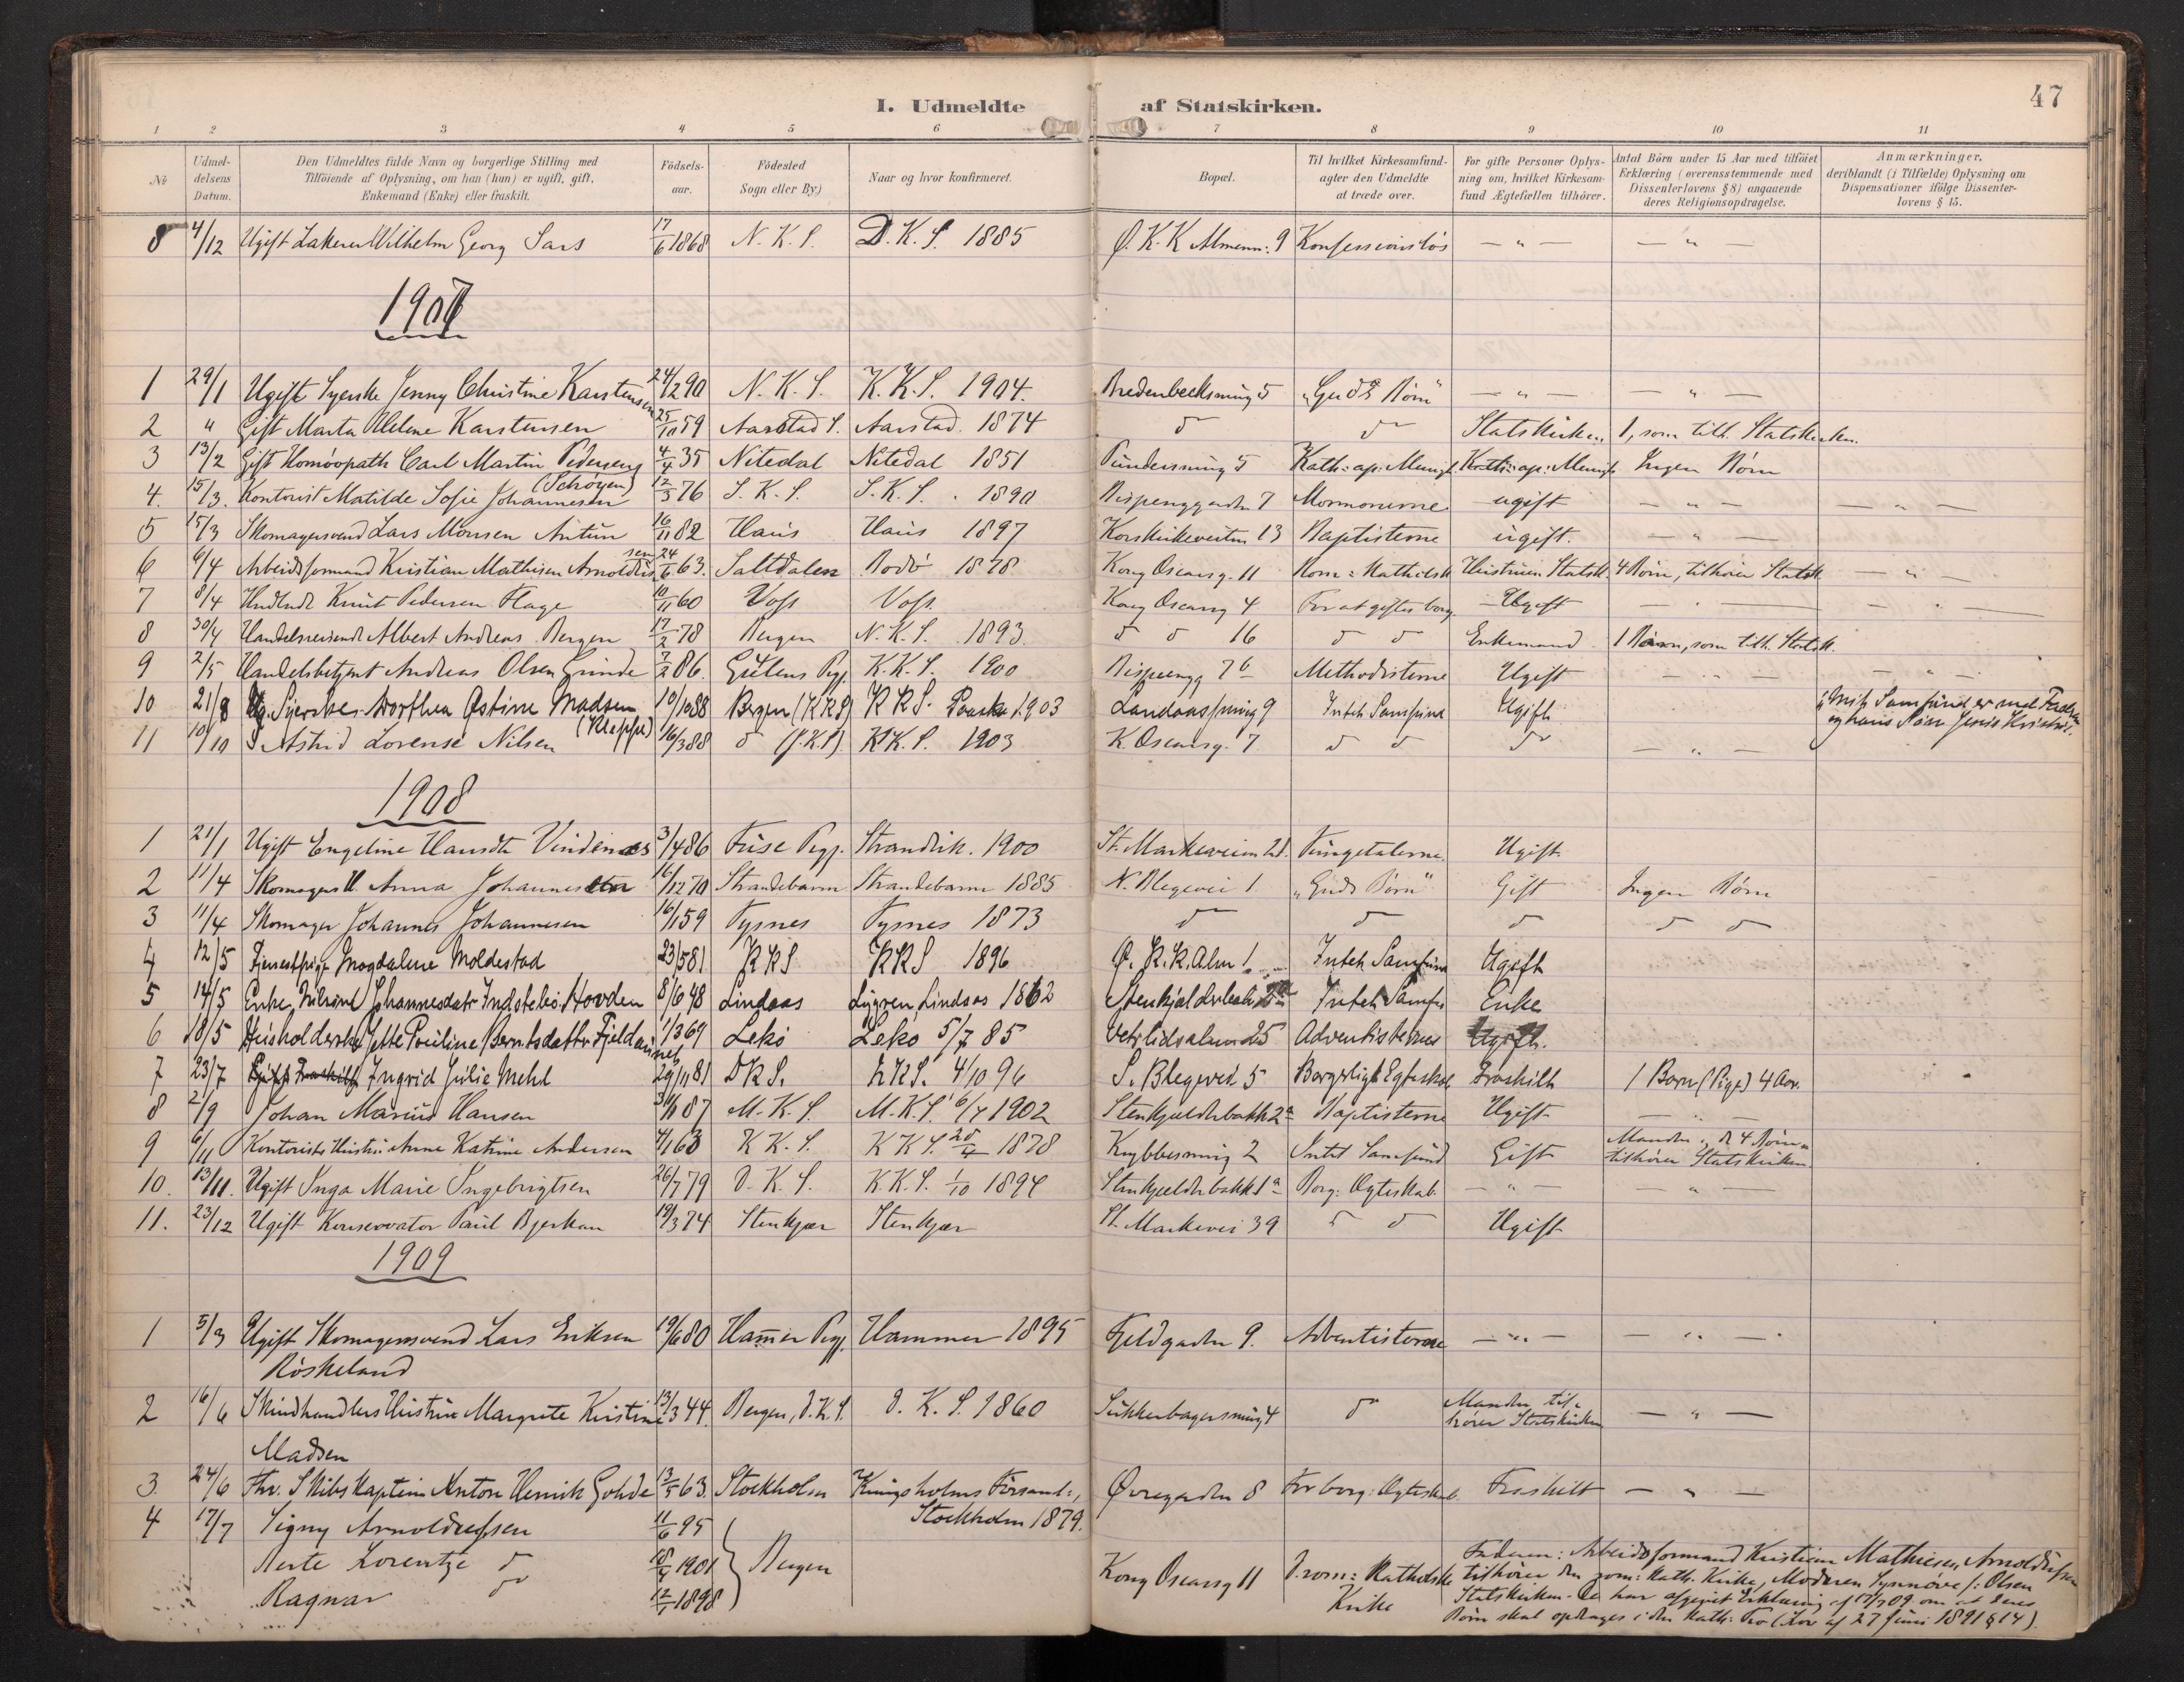 47
I. Udmeldte af Statskirken.
1 2 3 4 5 6 7 8 9 10 11
№
Udmeldelsens Datum.
Den Udmeldtes fulde Navn og borgerlige Stilling med Tilføiende af Oplysning, om han (hun) er ugift, gift, Enkemand (Enke) eller fraskilt.
Fødselsaar.
Fødested Sogn eller By.)
Naar og hvor konfirmeret.
Bopæl.
Til hvilket Kirkesamfund agter den Udmeldte at træde over.
For gifte Personer Oplysning om, hvilket Kirkesamfund Ægtefællen tilhører.
Antal Børn under 15 Aar med tilføiet Erklæring (overensstemmende med Dissenterlovens § 8) angaaende deres Religionsopdragelse.
Anmærkninger, deriblandt (i Tilfælde) Oplysning om Dispensationer ifølge Dissenterlovens § 15.
8 4/12 Ugift Lakerer Wilhelm Georg Sars 17/6 1868 N.K.S. D.K.S. 1885 Ø.K.K Almenn: 9 Konfessionsløs — " — — " —
1907
1 29/1 Ugift Syerske Jenny Christine Karstensen 24/2 90 N.K.S. K.K.S. 1904. Bredenbecksmug 5 "Guds Børn" — " — — " —
2 " Gift Marta Helene Karstensen 25/10 59 Aarstad S. Aarstad. 1874 d° d° Statskirken 1, som tilh. Statskirken.
3 13/2 Gift Homöopath Carl Martin Pedersen (Schøyen) 4/4 35 Nitedal Nitedal 1851 Pundersmug 5 Kath: ap: Menigh Kath: ap: Menigh Ingen Børn
4. 15/3. Kontorist Matilde Sofie Johannesen 12/3 76 S.K.S. S.K.S. 1890 Bispenggaden 7 Mormonerne ugift — " — — " —
5 15/3 Skomagersvend Lars Monsen Antun 16/11 82 Haus Haus 1897 Korskirkeveiten 13 Baptisterne ugift. — " —
6 6/4 Arbeidsformand Kristian Mathisen Arnoldussen 24/6 63. Saltdalen Bodö 1878 Kong Oscarsg. 11 Rom: Katholsk Hustruen Statsk. 4 Børn, tilhører Statsk. — " —
7 8/4 Knut Pedersen Flage 10/11 60 Voss Voss. Kong Oscarsg 4 For at giftes borg. Ugift — " — — " —
8 30/4 Handelsreisende Albert Andreas Bergen 17/2 78 Bergen N.K.S. 1893. d° d° 16 d° d° Enkemand 1 Barn, som tilh. Statsk.
9 2/5 Handelsbetjent Andreas Olsen Grinde 7/2 86. Gulens Pgj. K.K.S. 1900 Bispeengg 7 b Methodisterne Ugift — " — — " —
10 21/8 Ug. Syerske Dorthea Østine Madsen (Kleppe) 10/10 88 Bergen (KKS) KKS. Paaske 1903 Landaasmug 9 Intet Samfund Ugift " Mit Samfund er med Faderen og hans Søn Jesus Kristus".
11 10/10 Astrid Lorense Nilsen 16/3 88 d° (J.K.S). K.K.S. 1903 K. Oscarsg. 7 d° d° d° — " —
1908
1 21/1 Ugift Engeline Hansdtr Vindenes 3/4 86 Fuse Pgj. Strandvik. 1900 St. Markeveien 2d. Tungetalerne. Ugift
2 11/4 Skomagers H. Anna Johannesen 16/12 70 Strandebarm Strandebarm 1885 N. Blegevei 1 "Guds Børn" Gift Ingen Børn
3 11/4 Skomager Johannes Johannesen 16/1 59 Tysnes Tysnes 1873 d° d° d° d° d°
4 12/5 Tjenestpige Magdalene Moldestad 23/5 81 KKS KKS 1896 Ø. K.K. Alm 1 Intet Samfund Ugift
5 14/5 Enke Johannesdatr Indstebö Hovden 8/6 48 Lindaas Lygren, Lindaas 1862 Stenkjelderbak Intet Samfu Enke
6 18/5 Husholderske Jette Pouline Berntsdatter Fjeldavnet 1/3 69 Lekö Leko 5/7 85 Vetrlidsalmn 25 Adventisterne Ugift.
7 23/7 Ingrid Julie Mehl 29/11 81 DKS. KKS. 4/10 96 S. Blegevei 5 Borgerligt Egteskab Fraskilt 1 Barn (Pige) 4 Aar.
8 2/9 Johan Marius Hansen 87 M.K.S. M.K.S. 6/4 1902 Stenkjelderbakk 2 a Baptisterne Ugift — " —
9 6/11 Kontorists Hustru Anne Katrine Andersen 4/1 63 K K.S. K K S. 20/4 1878 Krybbesmug 2 Intet Samfund Gift Manden og de 4 Børn tilhører Statskirken
10. 13/11. Ugift Inga Marie Ingebrigtsen 26/7 79 D.K.S. K.K.S. 1/10 1894 Stenkjelderbakk 1 a Borg: Ægteskab — " — — " —
11. 23/12 Ugift Konservator Paul Bjerkan 19/3 74 Stenkjær Stenkjær St. Markevei 39 d° d° Ugift
1909
1 5/3 Ugift Skomagersvend Lars Eriksen Röskeland 19/6 80 Hammer Pgj. Hammer 1895 Fjeldgaden 9. Adventisterne — " — — " —
2 16/6 Skindhandlers Hustru Margrete Kristine Madsen 13/3 44. Bergen, D.K.S. D.K.S. 1860 Sukkerbagersmug 4 d° Manden tilhører Statskirken — " —
3. 24/6 Fhv. Skibskaptein Anton Henrik Gohde 13/5 63. Stockholm Kungsholms Församl:, Stockholm 1879. Øvregaden 8 For borg: Ægteskab. Fraskilt — " —
4 17/7 Signy Arnoldussen 11/6 95
Berte Lorentze d° 18/9 1901 Bergen Kong Oscarsg 11 D. rom: Katholske Kirke
Ragnar d° 12/1 1898
Faderen: Arbeidsformand Kristian Mathisen Arnoldussen
tilhører den rom: Kath. Kirke, Moderen Synnøve f: Olsen
Statskirken. De har afgivet Erklæring af 17/7 09 om at deres
Børn skal opdrages i den Kath: Tro (Lov af 27 Juni 1891 § 14).